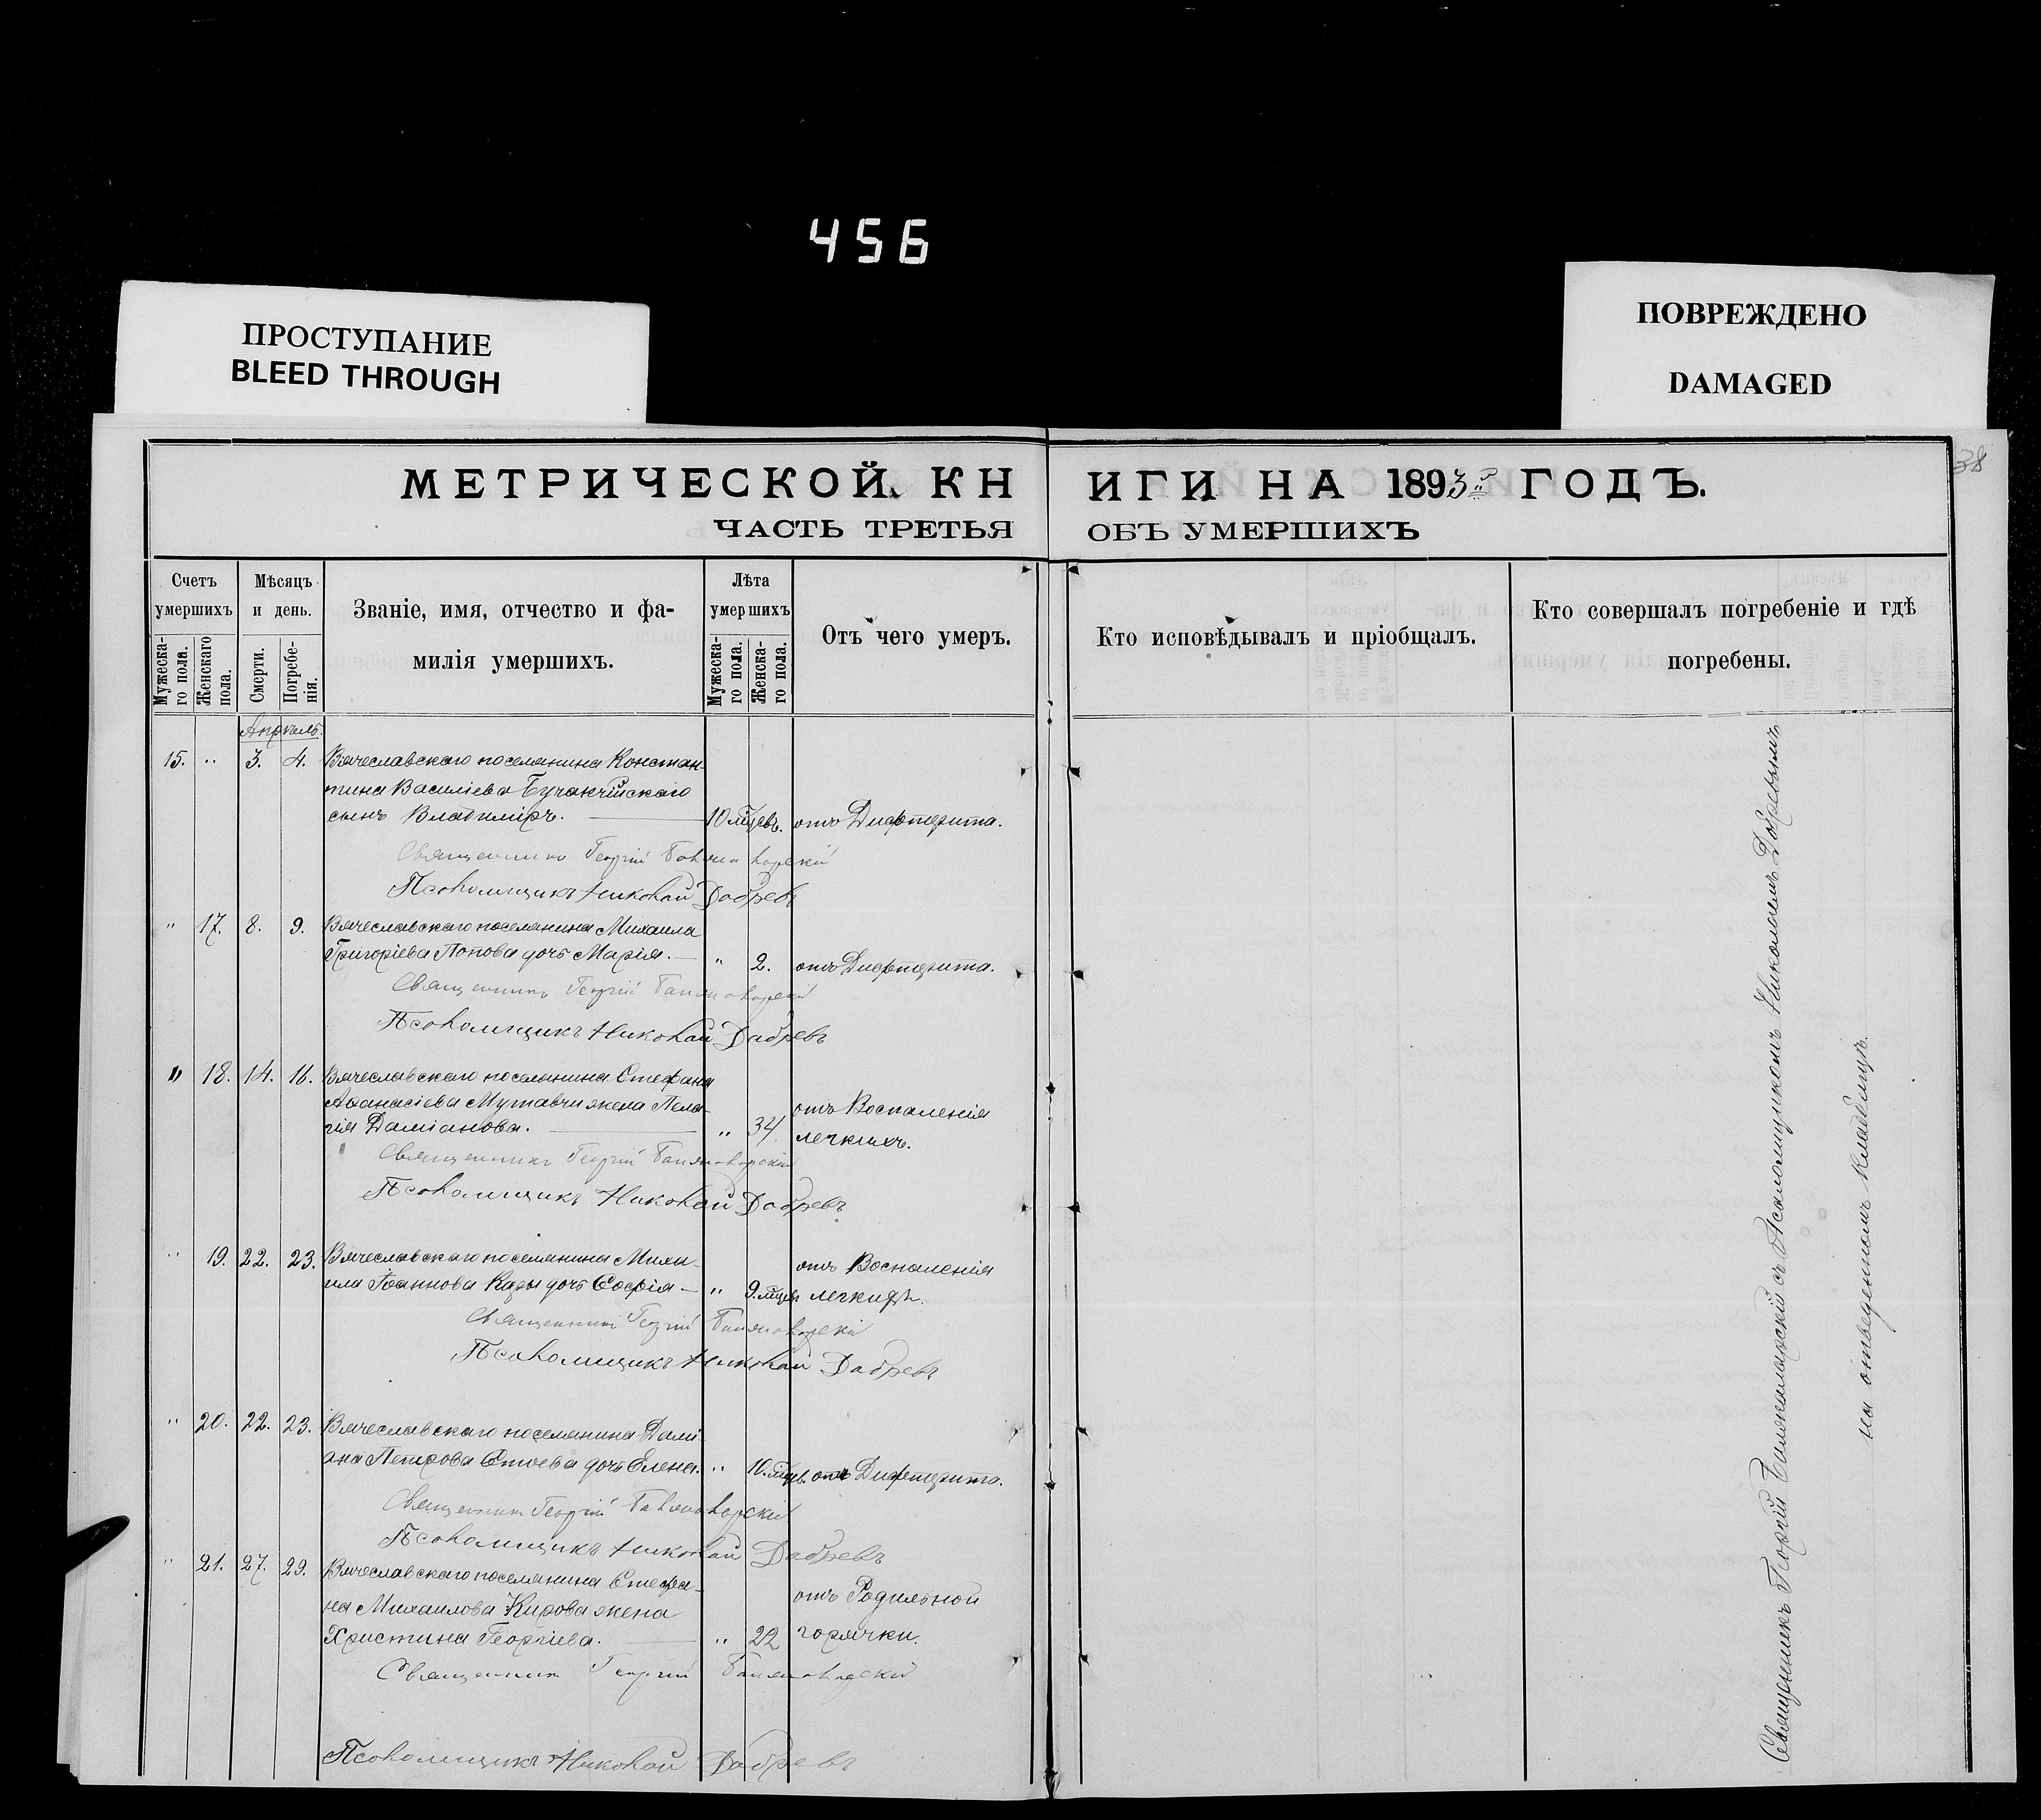 456
ПРОСТУПАНИЕ
BLEED THROUGH
ПОВРЕЖДЕНО
DAMAGED
38
МЕТРИЧЕСКОЙ КНИГИ НА 1893 ГОДЪ.
ЧАСТЬ ТРЕТЬЯ ОБЪ УМЕРШИХЪ
Счетъ умершихъ
Мужеска-го пола.
Женскаго пола.
Мѣсяцъ и день.
Смерти.
Погребе-нія.
Званіе, имя, отчество и фа-
милія умершихъ.
Лѣта умершихъ
Мужеска-го пола.
Женска-го пола.
Отъ чего умеръ.
Кто исповѣдывалъ и пріобщалъ.
Кто совершалъ погребеніе и гдѣ
погребены.
Апрѣль.
15. " 3. 4. Вячеславскаго поселянина Констан-
тина Василіева
сынъ Владиміръ. 10 мцевъ. отъ Дифтерита.
Священникъ Георгій
Псаломщикъ Николай Добревъ
" 17. 8. 9. Вячеславскаго поселянина Михаила
Григоріева Попова дочь Марія. " 2. отъ Дифтерита.
Священникъ Георгій
Псаломщикъ Николай Добревъ
" 18. 14. 16. Вячеславскаго поселянина Стефана
Аѳанасіева Мутавчи жена Пела-
гія Даміанова. " 34. отъ Воспаленія
легкихъ.
Священникъ Георгій
Псаломщикъ Николай Добревъ
" 19. 22. 23. Вячеславскаго поселянина Миха-
ила Іоаннова дочь Софія " 9. мцевъ отъ Воспаленія
легкихъ.
Священникъ Георгій
Псаломщикъ Николай Добревъ
" 20. 22. 23. Вячеславскаго поселянина Дамі-
ана Петрова Стоева дочь Елена. " 10. мцевъ. отъ Дифтерита.
Священникъ Георгій
Псаломщикъ Николай Добревъ
" 21. 27. 29. Вячеславскаго поселянина Стефа-
на Михаилова Кирова жена
Христина Георгіева. " 22 отъ Родильной
горячки.
Священникъ Георгій
Псаломщикъ Николай Добревъ
Священникъ Георгій съ Псаломщикомъ Николаемъ Добревымъ
на отведенномъ кладбищѣ.